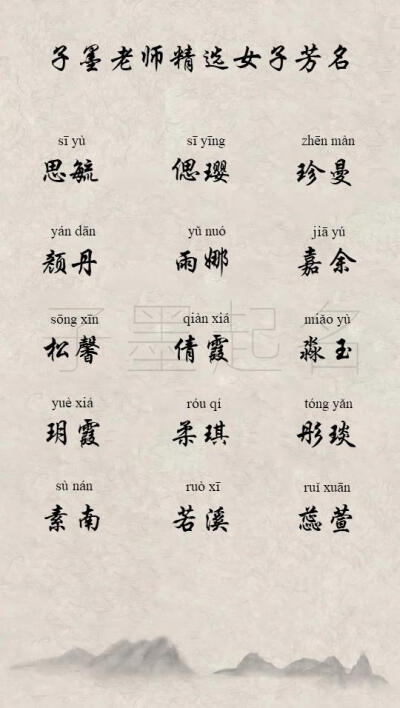 子墨老师精选女子芳名
sī yù sī yīng zhēn màn
思毓 偲璎 珍曼
yán dān yǔ nuó jiā yú
颜丹 雨娜 嘉余
子墨起名
sōng xīn qiàn xiá miǎo yù
松馨 倩霞 淼玉
yuè xiá róu qí tóng yǎn
玥霞 柔琪 彤琰
sù nán ruò xī ruǐ xuān
素南 若溪 蕊萱